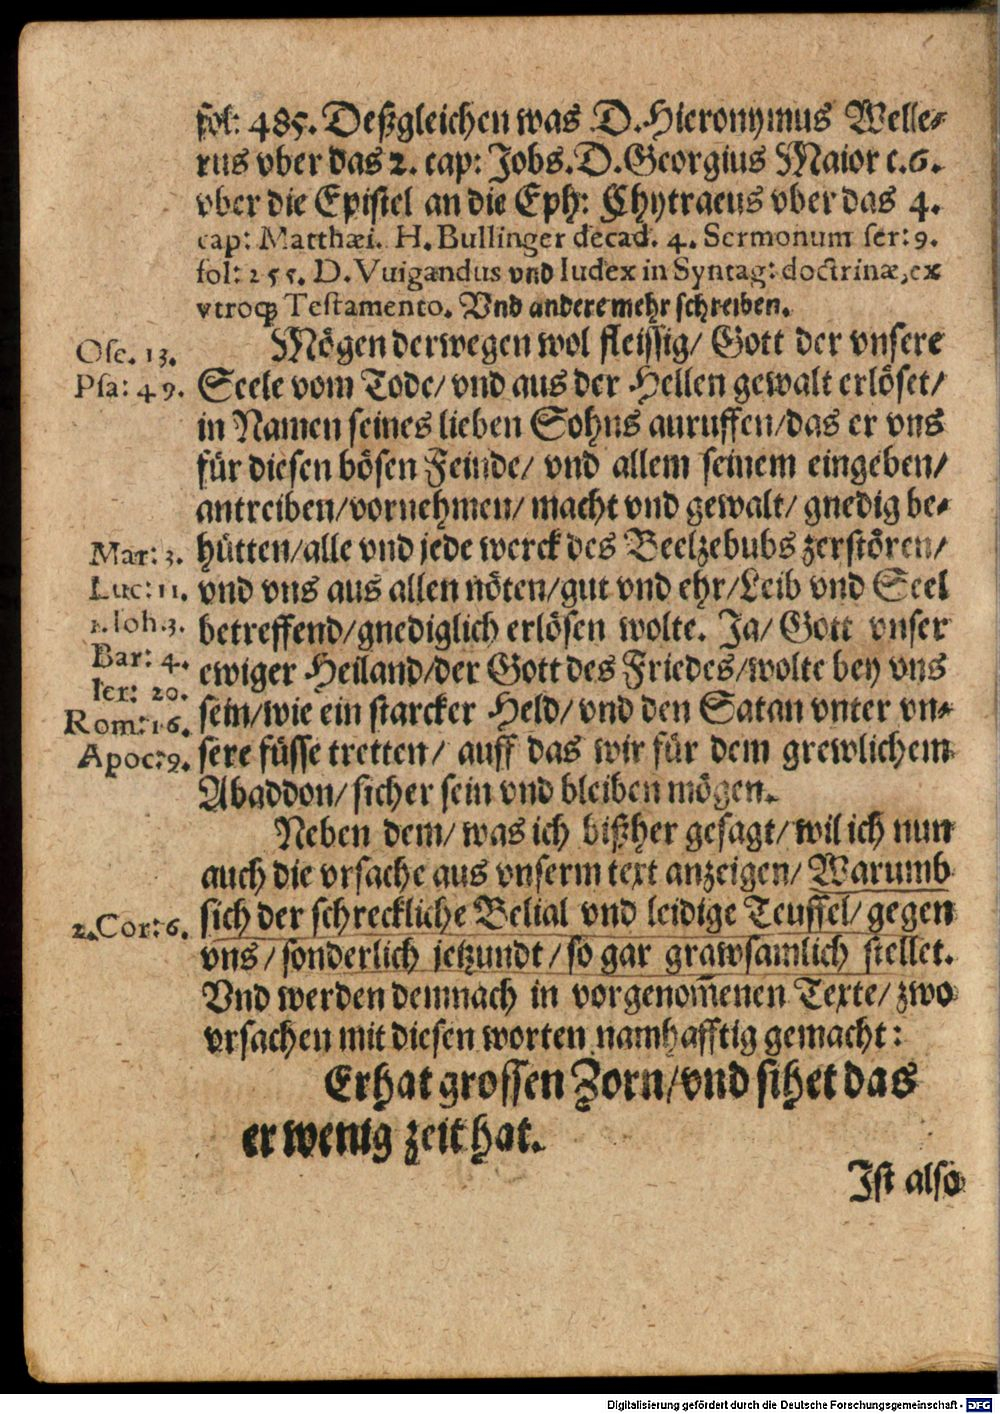 fol: 485. Deßgleichen was D. Hieronymus Welle-
rus vber das 2. cap: Jobs. D. Georgius Maior c. 6.
vber die Epistel an die Eph: Chytraeus vber das 4.
cap: Matthæi. H. Bullinger decad. 4. Sermonum ser: 9.
fol: 255. D. Vuigandus vnd Iudex in Syntag: doctrinæ, ex
vtroq; Testamento. Vnd andere mehr schreiben.
Mögen derwegen wol fleissig/ Gott der vnsere
Ose. 13.
Psa: 49. Seele vom Tode/ vnd aus der Hellen gewalt erlöset/
in Namen seines lieben Sohns anruffen/ das er vns
für diesen bösen Feinde/ vnd allem seinem eingeben/
antreiben/ vornehmen/ macht vnd gewalt/ gnedig be-
Mar: 3. hütten/ alle vnd jede werck des Beelzebubs zerstören/
Luc: 11. vnd vns aus allen nöten/ gut vnd ehr/ Leib vnd Seel
1. Ioh. 3. betreffend/ gnediglich erlösen wolte. Ja/ Gott vnser
Bar: 4. ewiger Heiland/ der Gott des Friedes/ wolte bey vns
Ier: 20.
Rom: 16. sein/ wie ein starcker Held/ vnd den Satan vnter vn-
Apoc: 9. sere füsse tretten/ auff das wir für dem grewlichem
Abaddon/ sicher sein vnd bleiben mögen.
Neben dem/ was ich bißher gesagt/ wil ich nun
auch die vrsache aus vnserm text anzeigen/ Warumb
2. Cor: 6. sich der schreckliche Belial vnd leidige Teuffel/ gegen
vns/ sonderlich jetzundt/ so gar grawsamlich stellet.
Vnd werden demnach in vorgenom̄enen Texte/ zwo
vrsachen mit diesen worten namhafftig gemacht:
Er hat grossen Zorn/ vnd sihet das
er wenig zeit hat.
Ist also
Digitalisierung gefördert durch die Deutsche Forschungsgemeinschaft - DFG